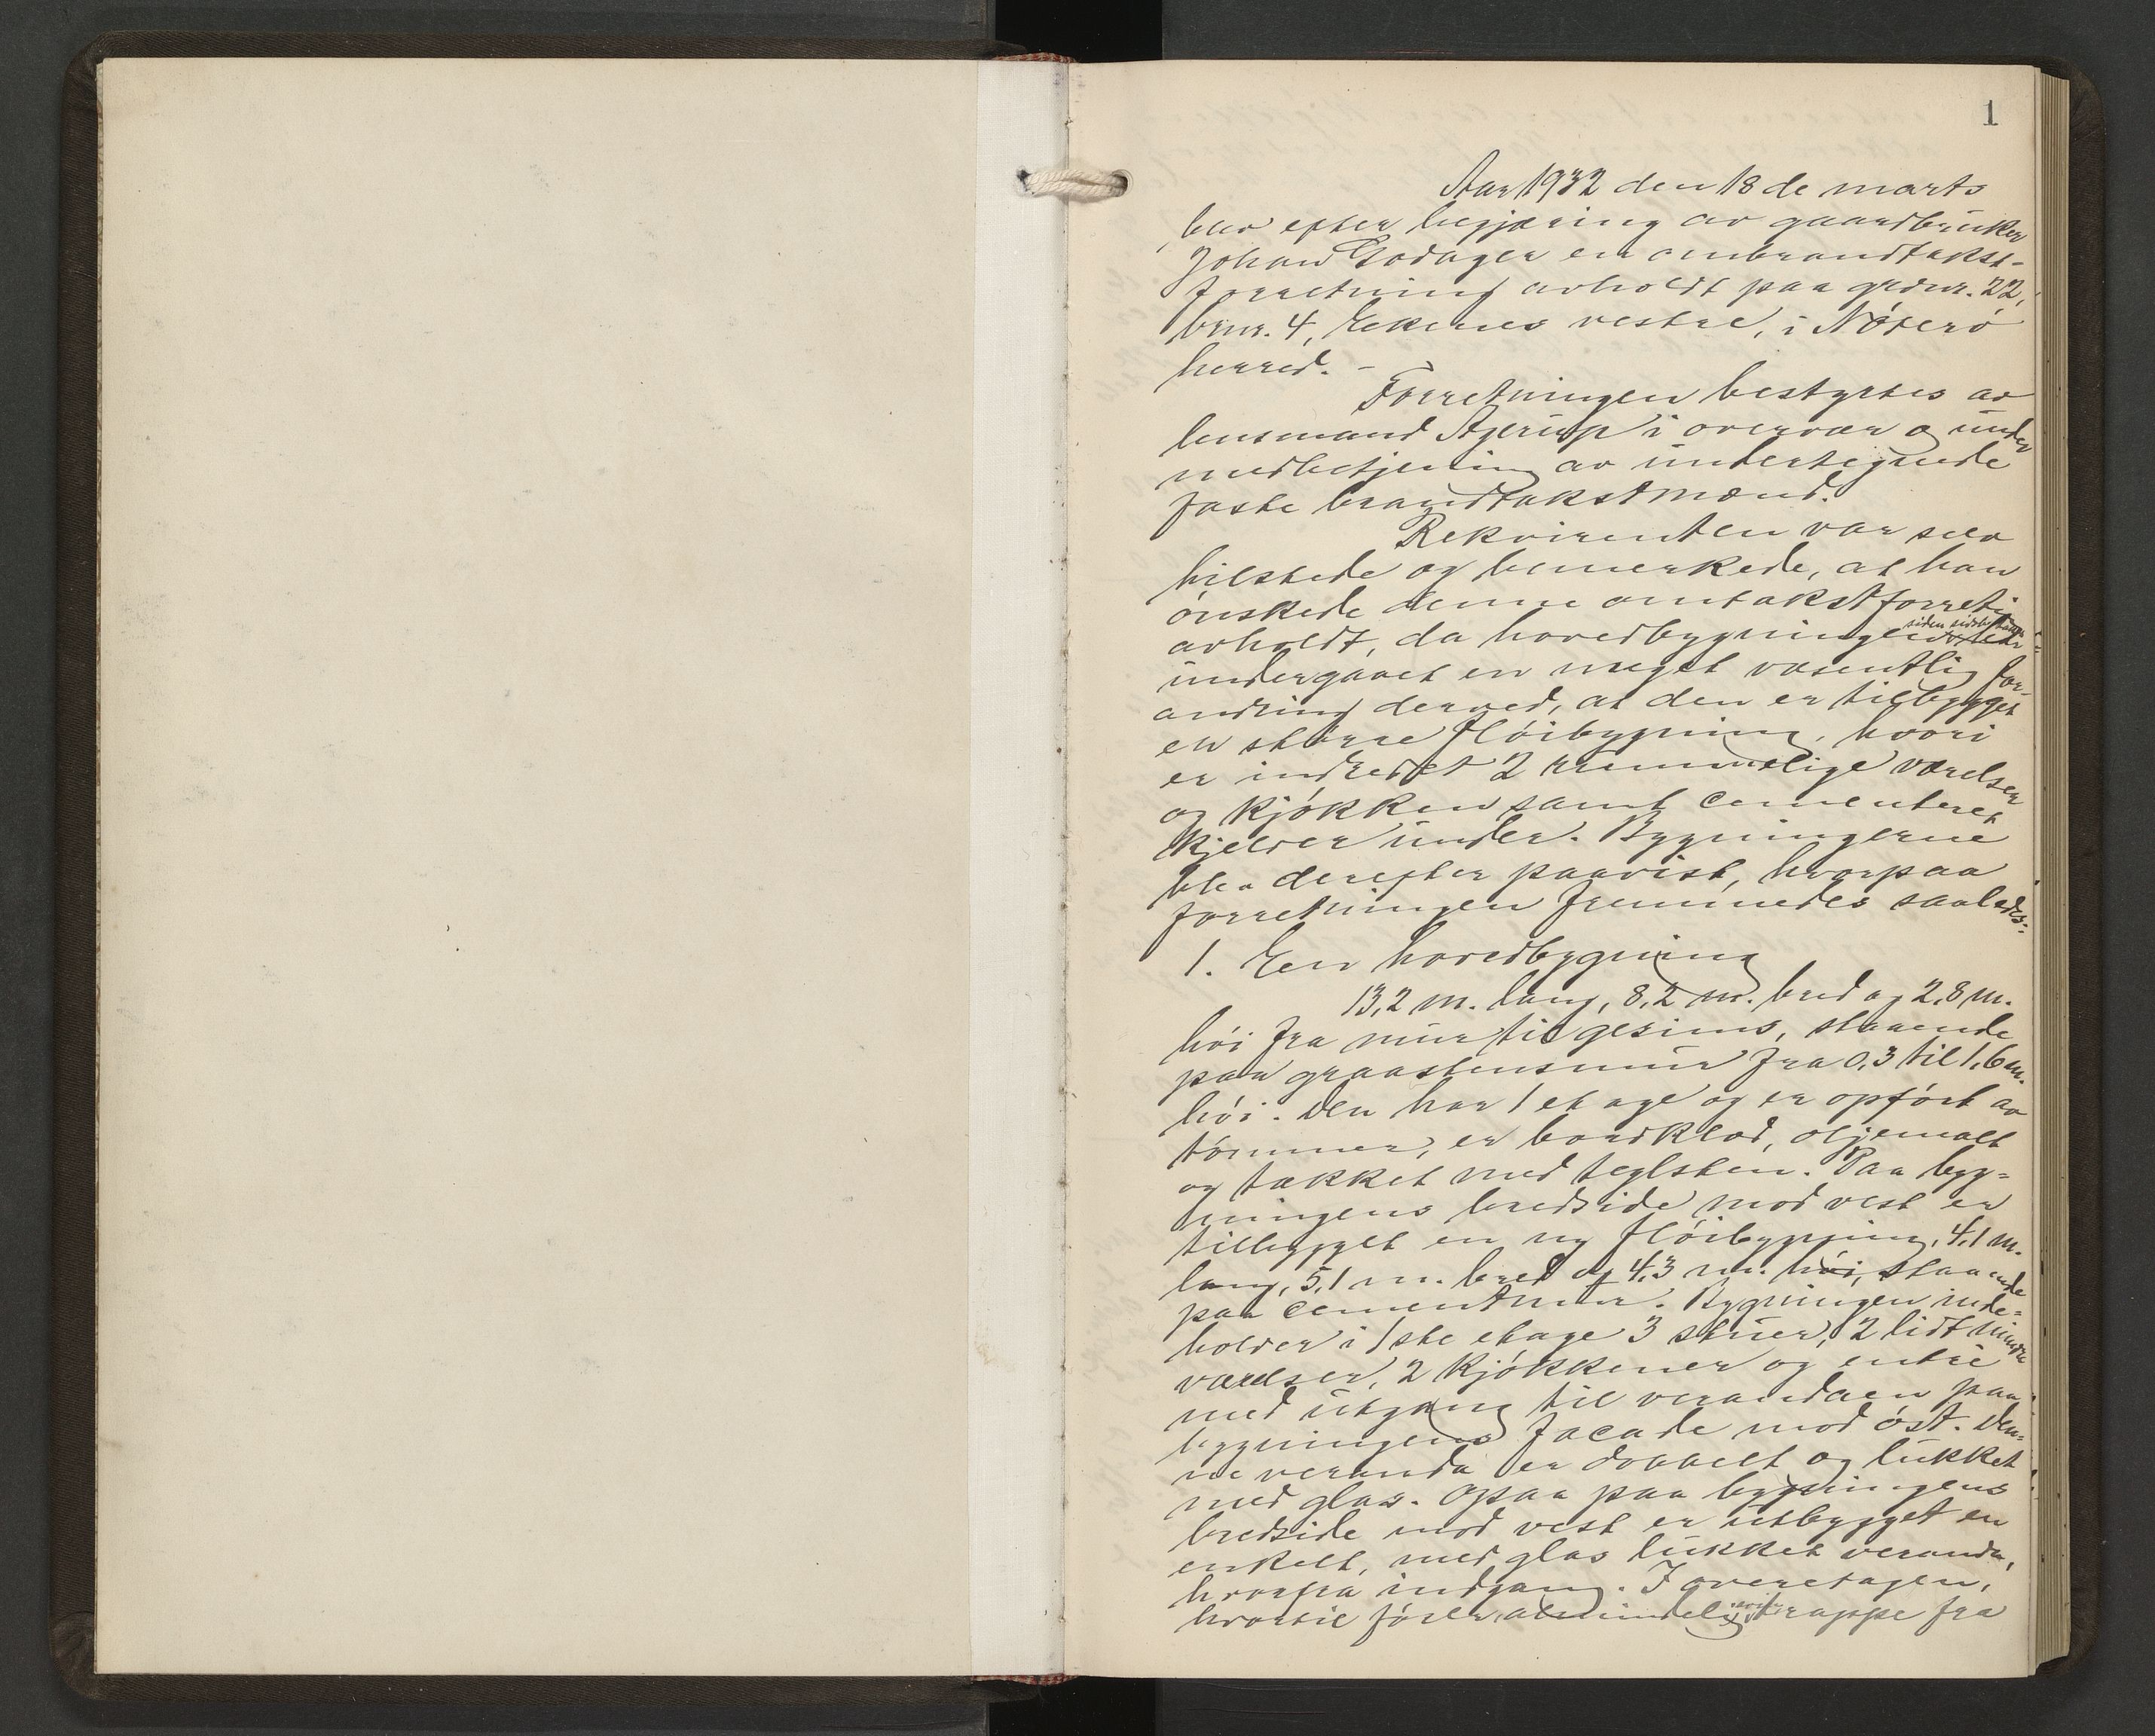 1
Aar 1932 den 18de marts
blev efter begjæring av gaardbruker
Johan Godager en ombrandtakst-
forretning avholdt paa grdnr. 22,
brnr. 4, Ekenes vestre, i Nøterø
herred. -
Forretningen bestyrtes av
lensmand Agerup i overvær og under
medbetjening av undertegnede
faste brandtakstmænd.
Rekvirenten var selv
tilstede og bemerkede, at han
ønskede denne omtakstforretn.
avholdt, da hovedbygningen siden sidste takst har
undergaaet en meget væsentlig for-
andring derved, at den er tilbygget
en større fløibygning, hvori
er indredet 2 rummelige værelser
og kjøkken samt cementeret
kjelder under. Bygningerne
blev derefter paavist, hvorpaa
forretningen fremmedes saaledes:
1. En hovedbygning
13,2 m. lang, 8,2 m. bred og 2,8 m.
høi fra mur til gesims, staaende
paa graastensmur fra 0,3 til 1,6 m.
høi. Den har 1 etage og er opført av
tømmer, er bordklæd, oljemalt
og tækket med teglsten. Paa byg-
ningens bredside mod vest er
tilbygget en ny fløibygning, 4,1 m.
lang, 5,1 m. bred og 4,3 m. høi, staaende
paa cementmur. Bygningen inde-
holder i 1ste etage 3 stuer, 2 lidt mindre
værelser, 2 kjøkkener og entre
med utgang til verandaen paa
bygningens facade mod øst. Den-
ne veranda er dobbelt og lukket
med glas. Ogsaa paa bygningens
bredside mod vest er utbygget en
enkelt, med glas lukket veranda,
hvorfra indgang. I overetagen,
hvortil fører almindelig trappe fra